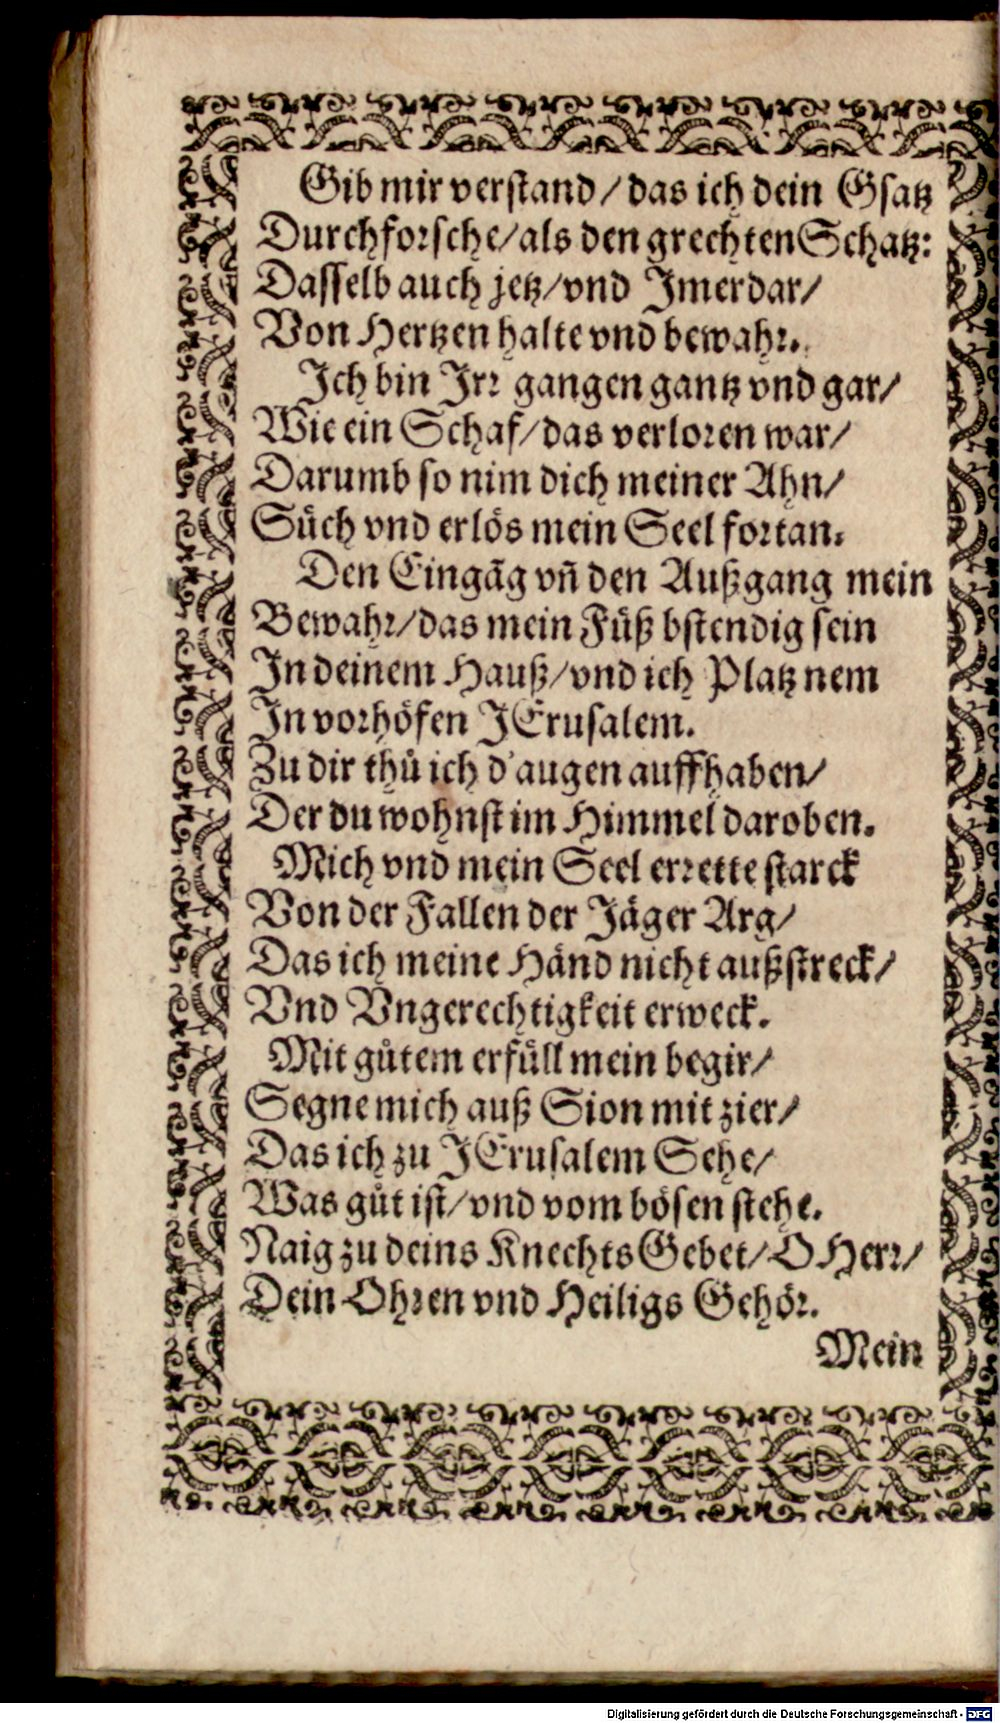 Gib mir verstand/ das ich dein Gsatz
Durchforsche/ als den grechten Schatz:
Dasselb auch jetz/ vnd Jmerdar/
Von Hertzen halte vnd bewahr.
Jch bin Jrr gangen gantz vnd gar/
Wie ein Schaf/ das verloren war/
Darumb so nim dich meiner Ahn/
Sůch vnd erlös mein Seel fortan.
Den Eingãg vñ den Außgang mein
Bewahr/ das mein Füß bstendig sein
Jn deinem Hauß/ vnd ich Platz nem
Jn vorhöfen JErusalem.
Zu dir thů ich d'augen auffhaben/
Der du wohnst im Himmel daroben.
Mich vnd mein Seel errette starck
Von der Fallen der Jäger Arg/
Das ich meine Händ nicht außstreck/
Vnd Vngerechtigkeit erweck.
Mit gůtem erfüll mein begir/
Segne mich auß Sion mit zier/
Das ich zu JErusalem Sehe/
Was gůt ist/ vnd vom bösen stehe.
Naig zu deins Knechts Gebet/ O Herr/
Dein Ohren vnd Heiligs Gehör.
Mein
Digitalisierung gefördert durch die Deutsche Forschungsgemeinschaft - DFG